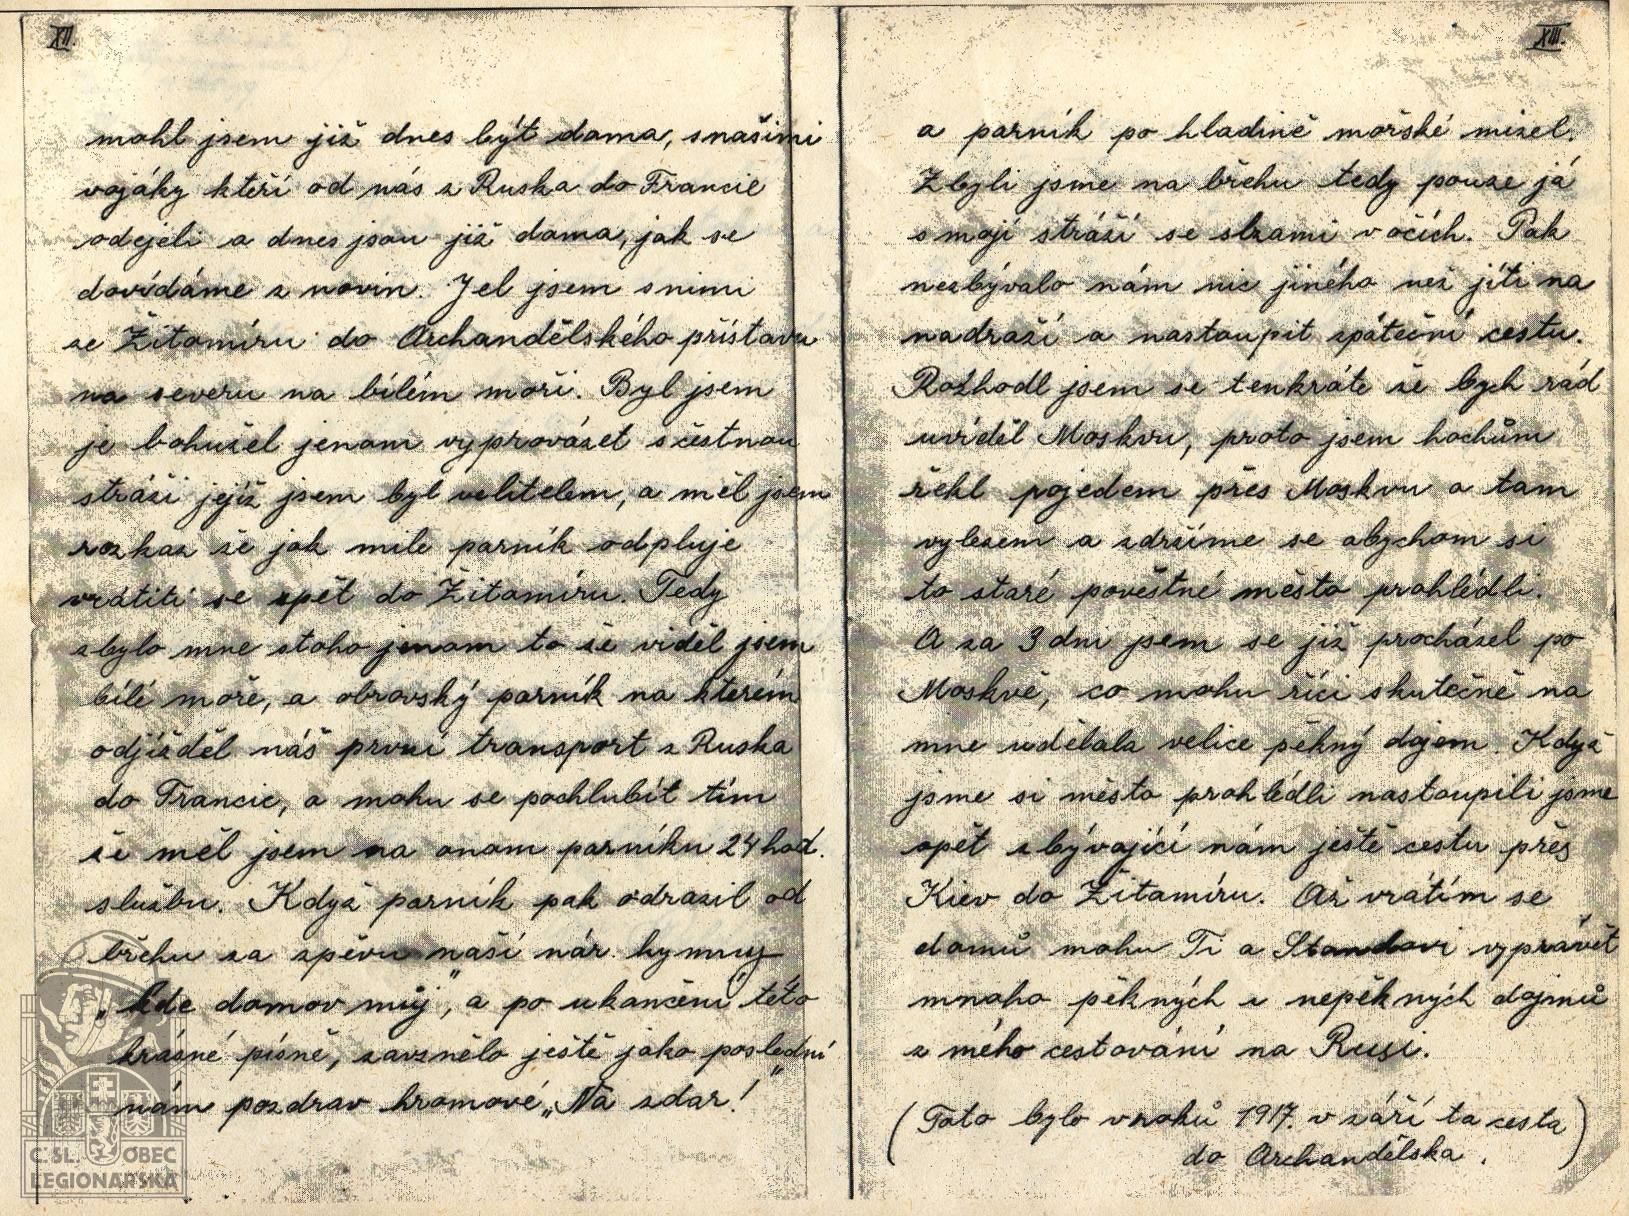 XII.
mohl jsem již dnes být doma, s našimi
vojáky kteří od nás z Ruska do Francie
odejeli a dnes jsou již doma, jak se
dovídáme z novin. Jel jsem s nimi
ze Žitomíru do Archandělského přístavu
na severu na bílém moři. Byl jsem
je bohužel jenom vyprovázet s čestnou
stráži jejíž jsem byl velitelem, a měl jsem
rozkaz že jak mile parník odpluje
vrátiti se zpět do Žitomíru. Tedy
zbylo mne z toho jenom to že viděl jsem
bílé moře, a obrovský parník na kterém
odjížděl náš první transport z Ruska
do Francie, a mohu se pochlubit tím
že měl jsem na onom parníku 24 hod.
službu. Když parník pak odrazil od
břehu za zpěvu naší nár. hymny
„kde domov můj", a po ukončení této
krásné písně, zavznělo ještě jako poslední
nám pozdrav hromové „Na zdar!"
XIII.
a parník po hladině mořské mizel.
Zbyli jsme na břehu tedy pouze já
s mojí stráží se slzami v očích. Pak
nezbývalo nám nic jiného než jíti na
nadraží a nastoupit zpáteční cestu.
Rozhodl jsem se tenkráte že bych rád
uviděl Moskvu, proto jsem hochům
řekl pojedem přes Moskvu a tam
vylezem a zdržíme se abychom si
to staré pověstné město prohlédli.
A za 3 dni jsem se již procházel po
Moskvě, co mohu říci skutečně na
mne udělala velice pěkný dojem. Když
jsme si město prohlédli nastoupili jsme
opět zbývající nám ještě cestu přes
Kiev do Žitomíru. Až vrátím se
domů mohu Ti a Standovi vyprávět
mnoho pěkných i nepěkných dojmů
z mého cestování na Rusi.
(Toto bylo v roku 1917. v září ta cesta
do Archandělska.)
Č. SL. OBEC
LEGIONÁŘSKÁ